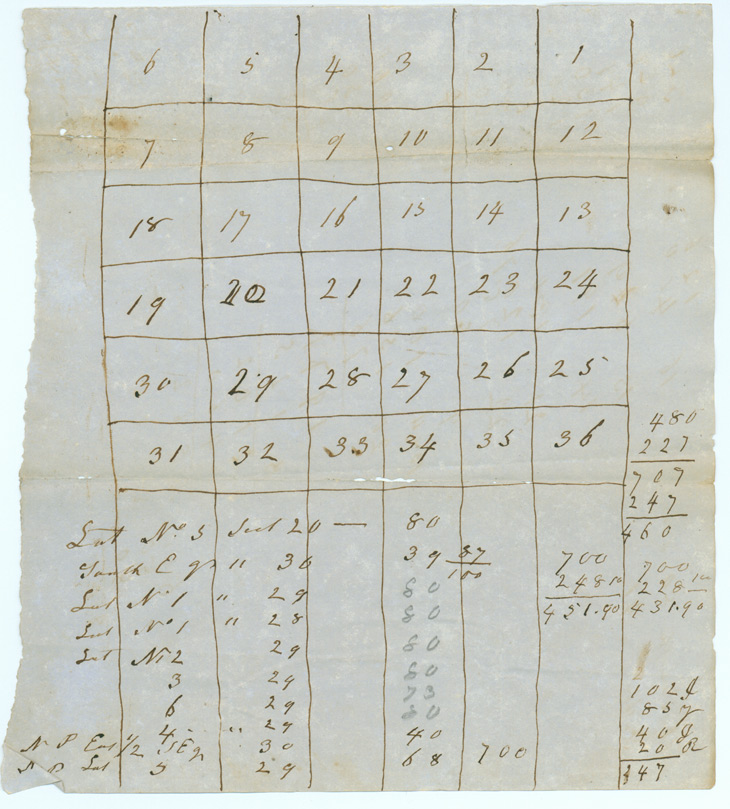 6 5 4 3 2 1
7 8 9 10 11 12
18 17 16 15 14 13
19 20 21 22 23 24
30 29 28 27 26 25
31 32 33 34 35 36
480
227
707
247
460
Lot No. 5 Sect 20 — 80
South E qr " 30 39 87/100
Lot No 1 " 29 80
Lot No 1 " 28 80
Lot No 2 29 80
3 29 80
6 29 73
4 " 29 80
N P East 1/2 S E qr 30 40
N P Lot 5 29 68 700
700
248 10
451.90
700
228 10
431.90
102 J
85 y
40 J
20 R
247